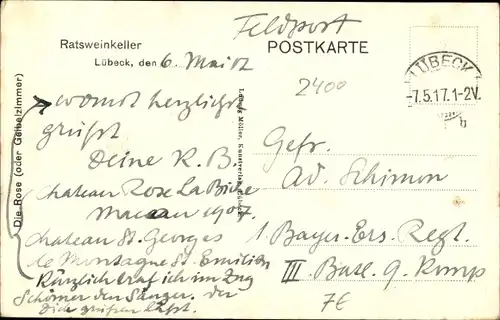 Feldpost
Ratsweinkeller
POSTKARTE
Lübeck, den 6. Mai 17
LÜBECK
7.5.17.1-2V.
2400
womit herzlichst
grüßt
Deine K. B.
Chateau Rose La Biche
Macau 1907.
Chateau St. Georges
le Montagne St. Emilion
Kürzlich traf ich im Zug
Schörner den Sänger. der
Dich grüßen läßt.
Die Rose (oder Geibelzimmer)
Ludwig Möller, Kunstverlag, Lübeck
Gefr.
Ad. Schimon
1. Bayer. Ers. Regt.
III. Batl. 9. Komp
7E